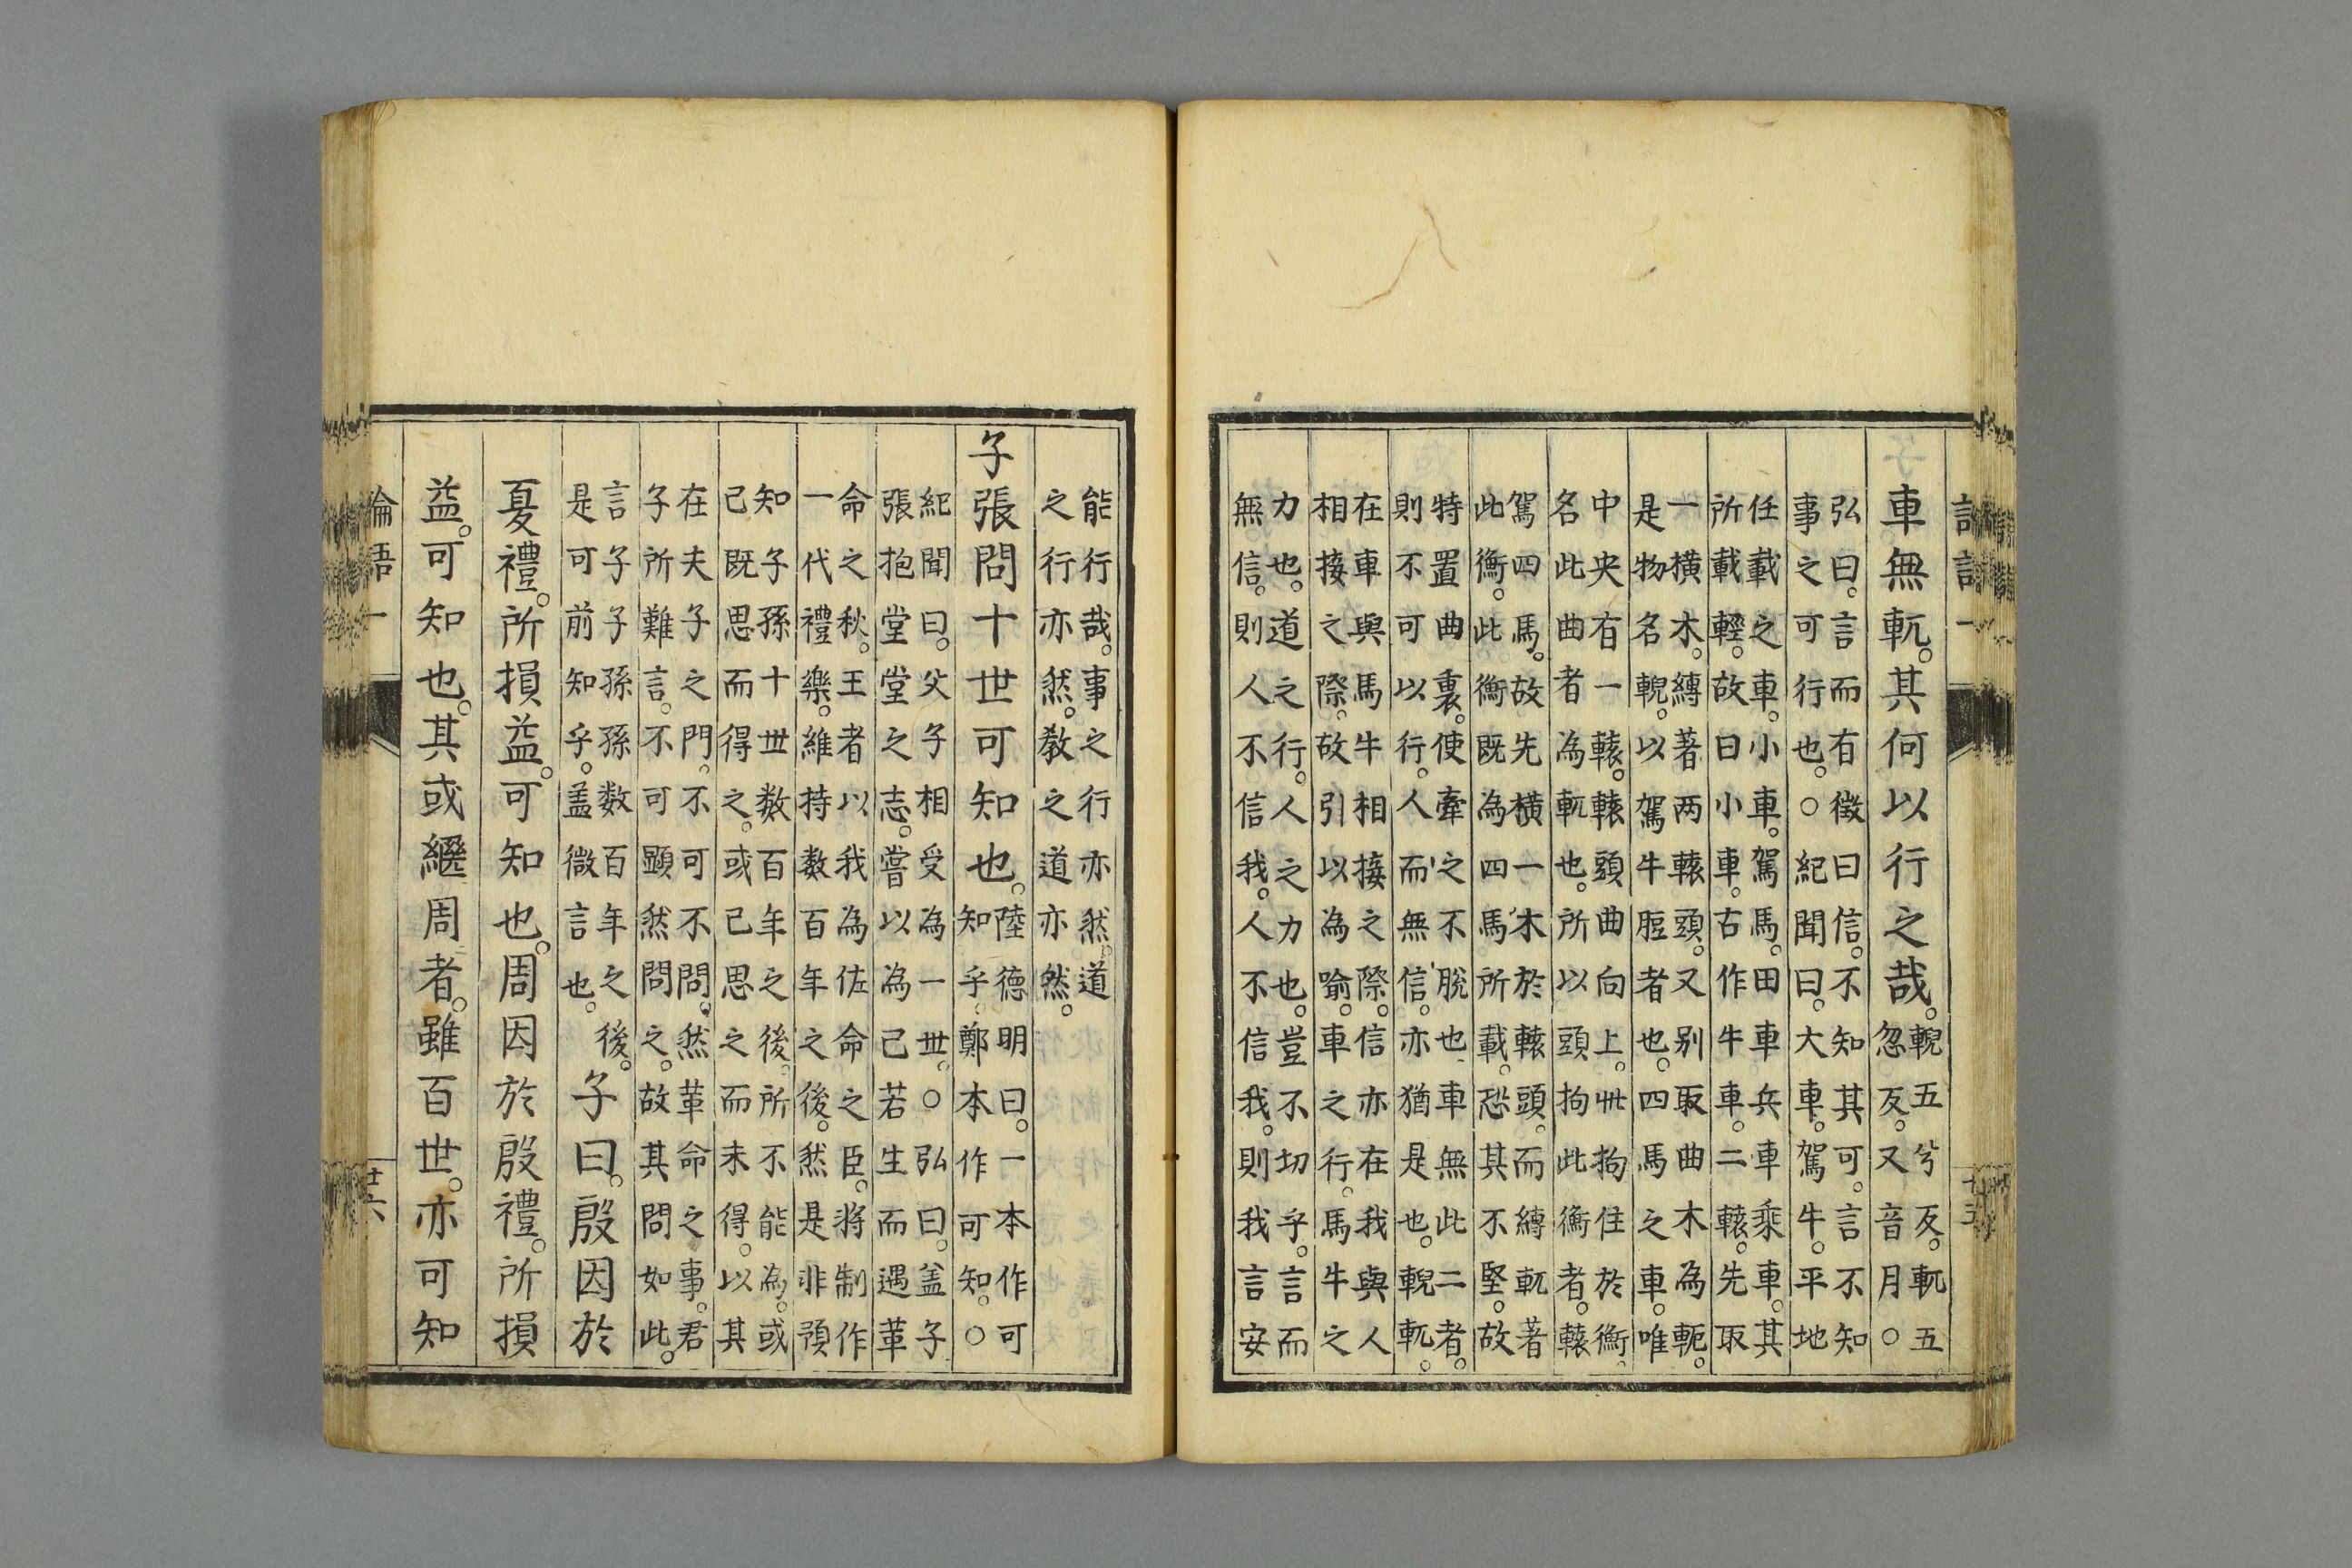 車無軏。其何以行之哉。
輗五兮反。軏五
忽反。又音月。○
弘曰。言而有徵曰信。不知其可。言不知
事之可行也。○紀聞曰。大車。駕牛。平地
任載之車。小車。駕馬。田車兵車乘車。其
所載輕。故曰小車。古作牛車。二轅。先取
一横木。縛著两轅頭。又别取曲木為軛。
是物名輗。以駕牛脰者也。四馬之車。唯
中央有一轅。轅頭曲向上。丗拘住於衡。
名此曲者為軏也。所以頭拘此衡者。轅
駕四馬。故先横一木於轅頭。而縛軏著
此衡。此衡既為四馬所載。恐其不堅。故
特置曲裏。使牽之不脫也。車無此二者。
則不可以行。人而無信。亦猶是也。輗軏。
在車與馬牛相接之際。信亦在我與人
相接之際。故引以為喻。車之行。馬牛之
力也。道之行。人之力也。豈不切乎。言而
無信。則人不信我。人不信我。則我言安
能行哉。事之行亦然。道
之行亦然。教之道亦然。
子張問十世可知也。
陸德明曰。一本作可
知乎。鄭本作可知。○
紀聞曰。父子相受為一丗。○弘曰。盖子
張抱堂堂之志。嘗以為己若生而遇革
命之秋。王者以我為佐命之臣。將制作
一代禮樂。維持数百年之後。然是非預
知子孫十丗数百年之後。所不能為。或
己既思而得之。或己思之而未得。以其
在夫子之門。不可不問。然革命之事。君
子所難言。不可顯然問之。故其問如此。
言子子孫孫数百年之後。
是可前知乎。盖微言也。
子曰。殷因於
夏禮。所損益。可知也。周因於殷禮。所損
益。可知也。其或繼周者。雖百世。亦可知
論語一
廿六